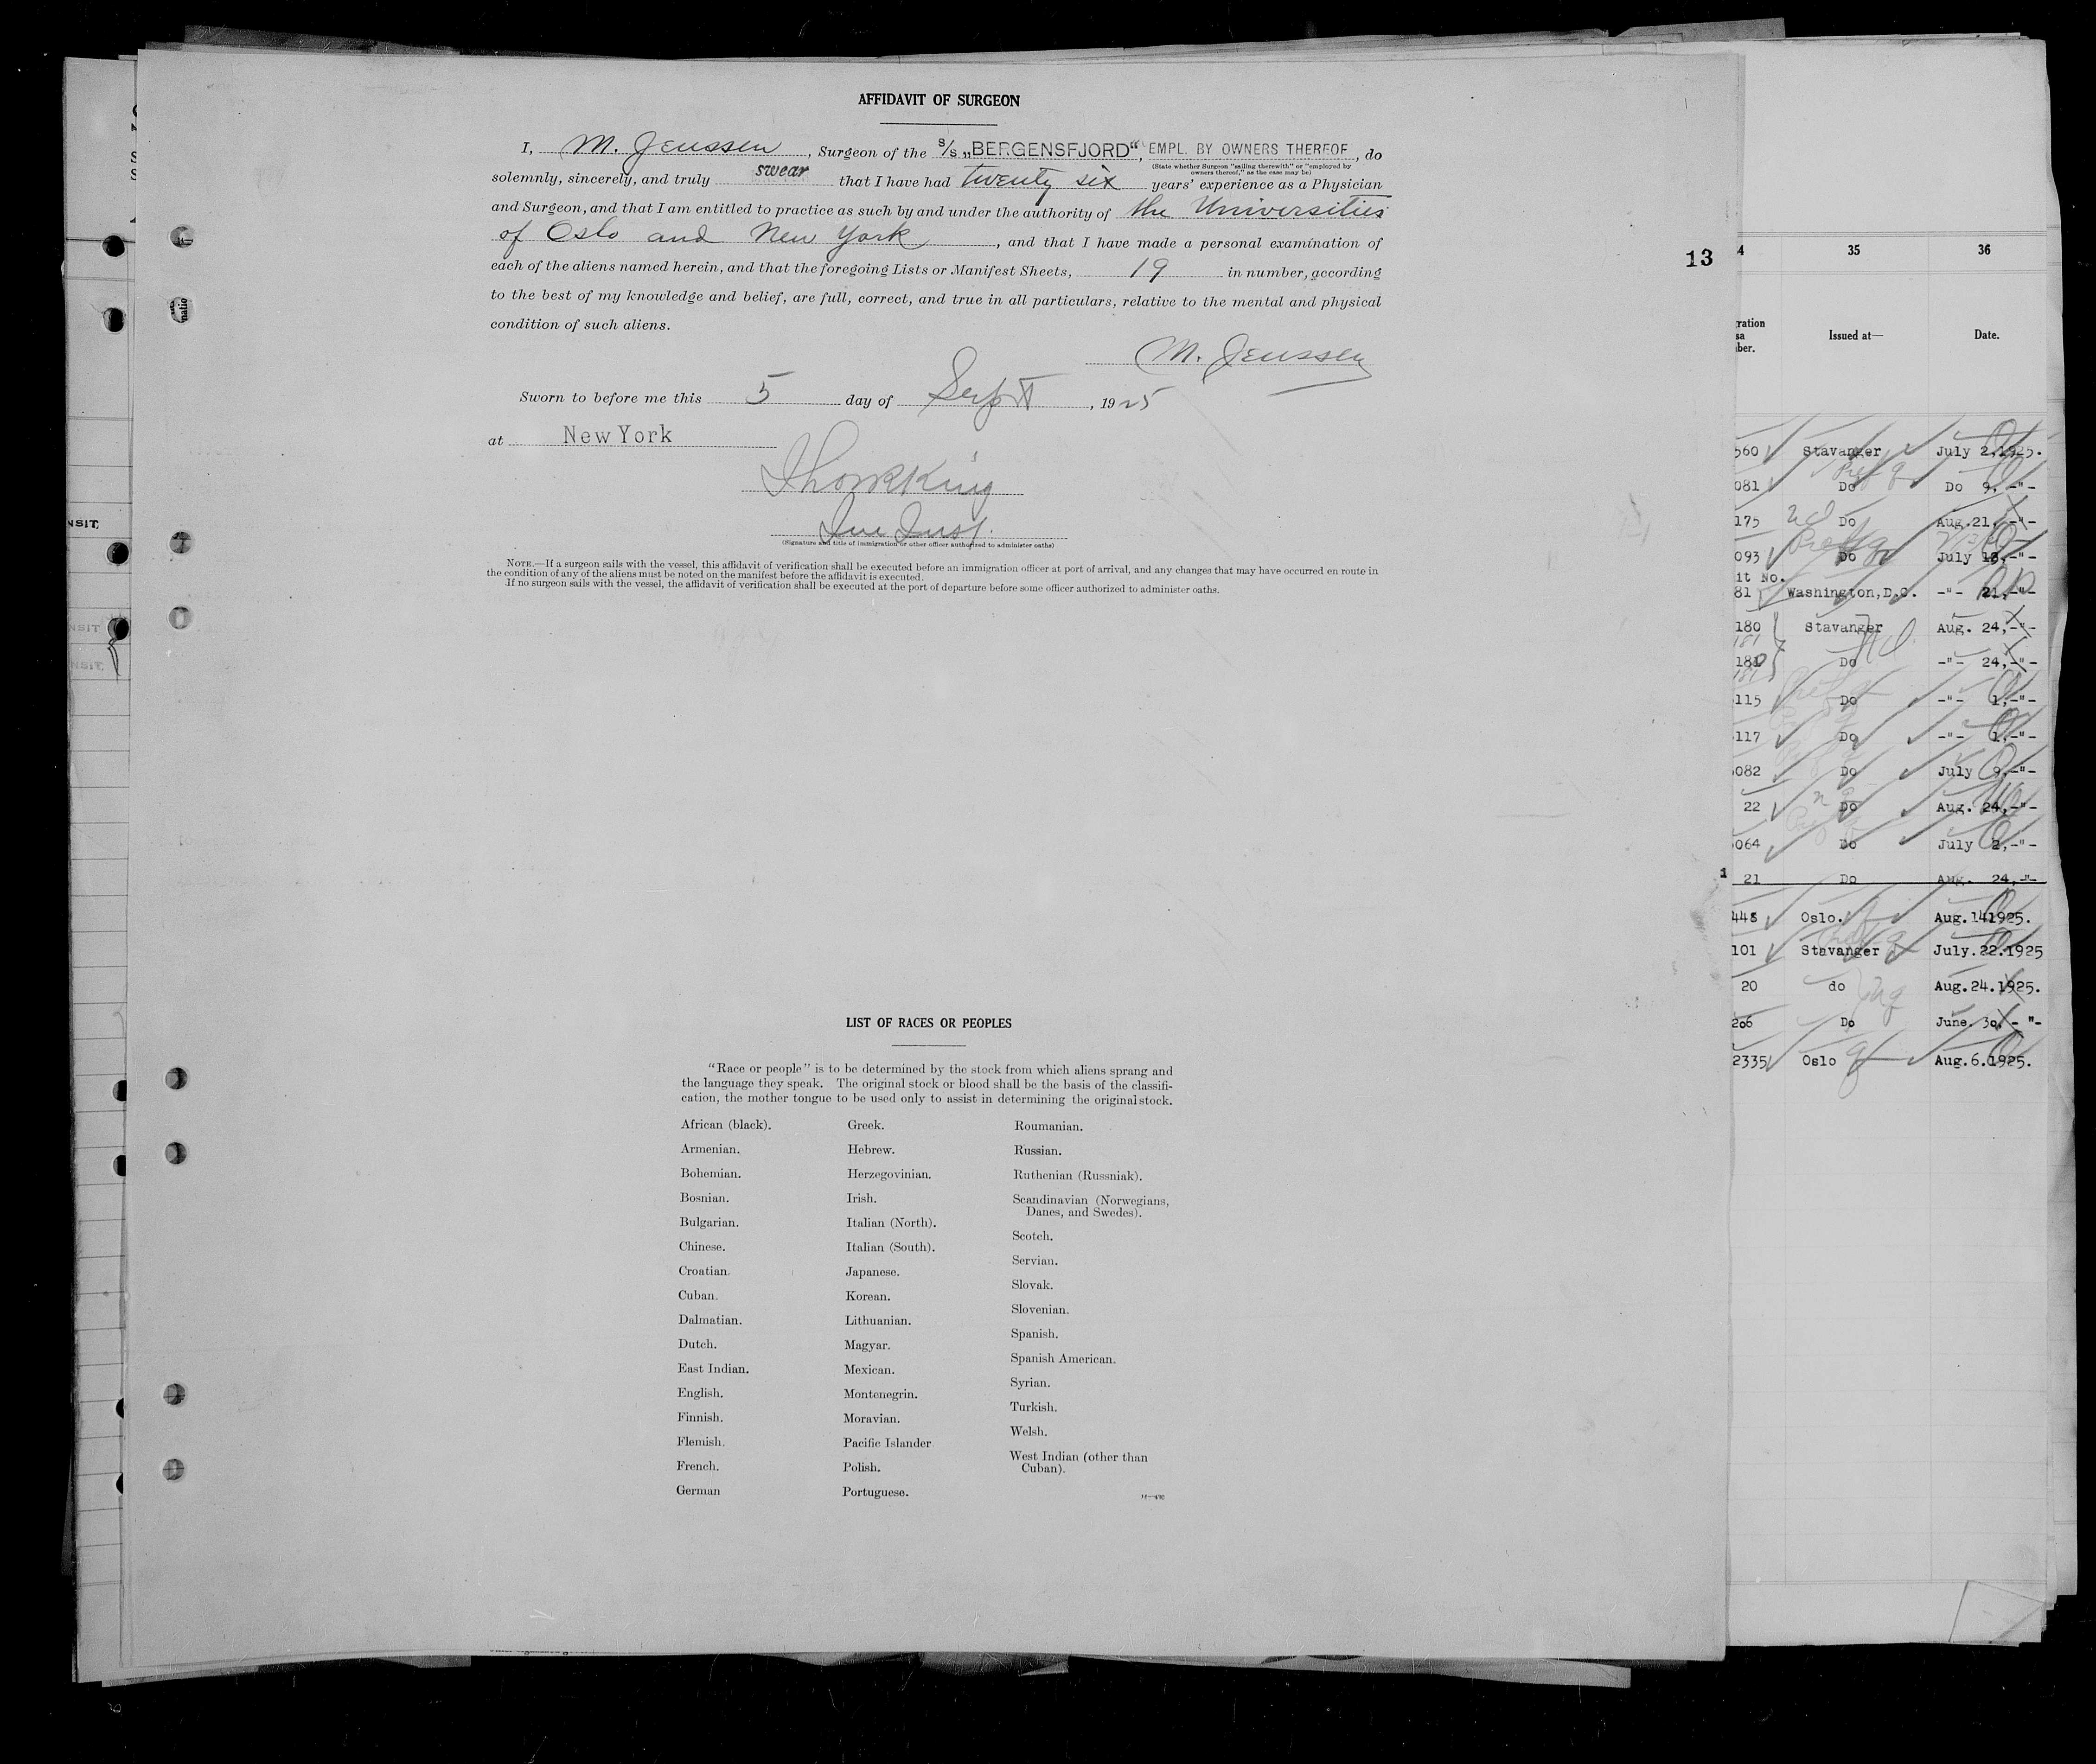 AFFIDAVIT OF SURGEON
I, M. Jenssen, Surgeon of the S/s „BERGENSFJORD“, EMPL. BY OWNERS THEREOF, do
(State whether Surgeon "sailing therewith" or "employed by
owners thereof," as the case may be)
solemnly, sincerely, and truly swear that I have had twenty six years' experience as a Physician
and Surgeon, and that I am entitled to practice as such by and under the authority of the Universities
of Oslo and New York, and that I have made a personal examination of
each of the aliens named herein, and that the foregoing Lists or Manifest Sheets, 19 in number, according
to the best of my knowledge and belief, are full, correct, and true in all particulars, relative to the mental and physical
condition of such aliens.
M. Jenssen
Sworn to before me this 5 day of Sept, 1925
at New York
(Signature and title of immigration or other officer authorized to administer oaths)
NOTE.—If a surgeon sails with the vessel, this affidavit of verification shall be executed before an immigration officer at port of arrival, and any changes that may have occurred en route in
the condition of any of the aliens must be noted on the manifest before the affidavit is executed.
If no surgeon sails with the vessel, the affidavit of verification shall be executed at the port of departure before some officer authorized to administer oaths.
LIST OF RACES OR PEOPLES
"Race or people" is to be determined by the stock from which aliens sprang and
the language they speak. The original stock or blood shall be the basis of the classifi-
cation, the mother tongue to be used only to assist in determining the original stock.
African (black).
Armenian.
Bohemian.
Bosnian.
Bulgarian.
Chinese.
Croatian.
Cuban.
Dalmatian.
Dutch.
East Indian.
English.
Finnish.
Flemish.
French.
German
Greek.
Hebrew.
Herzegovinian.
Irish.
Italian (North).
Italian (South).
Japanese.
Korean.
Lithuanian.
Magyar.
Mexican.
Montenegrin.
Moravian.
Pacific Islander
Polish.
Portuguese.
Roumanian.
Russian.
Ruthenian (Russniak).
Scandinavian (Norwegians,
Danes, and Swedes).
Scotch.
Servian.
Slovak.
Slovenian.
Spanish.
Spanish American.
Syrian.
Turkish.
Welsh.
West Indian (other than
Cuban).
13
4 35 36
Issued at— Date.
560 Stavanger July 2,1925.
081 Do Do 9, -"-
175 Do Aug.21, -"-
093 Do July 18,-"-
it No.
81 Washington,D.C. -"- 21,-"-
180 Stavanger Aug. 24,-"-
181 Do -"- 24,-"-
115 Do -"- 1,-"-
117 Do -"- 1,-"-
082 Do July 9,-"-
22 Do Aug. 24,-"-
064 Do July 2,-"-
21 Do Aug. 24,-"-
448 Oslo. Aug.141925.
101 Stavanger July.22.1925
20 do Aug.24.1925.
206 Do June. 30. - "-
2335 Oslo Aug.6.1925.